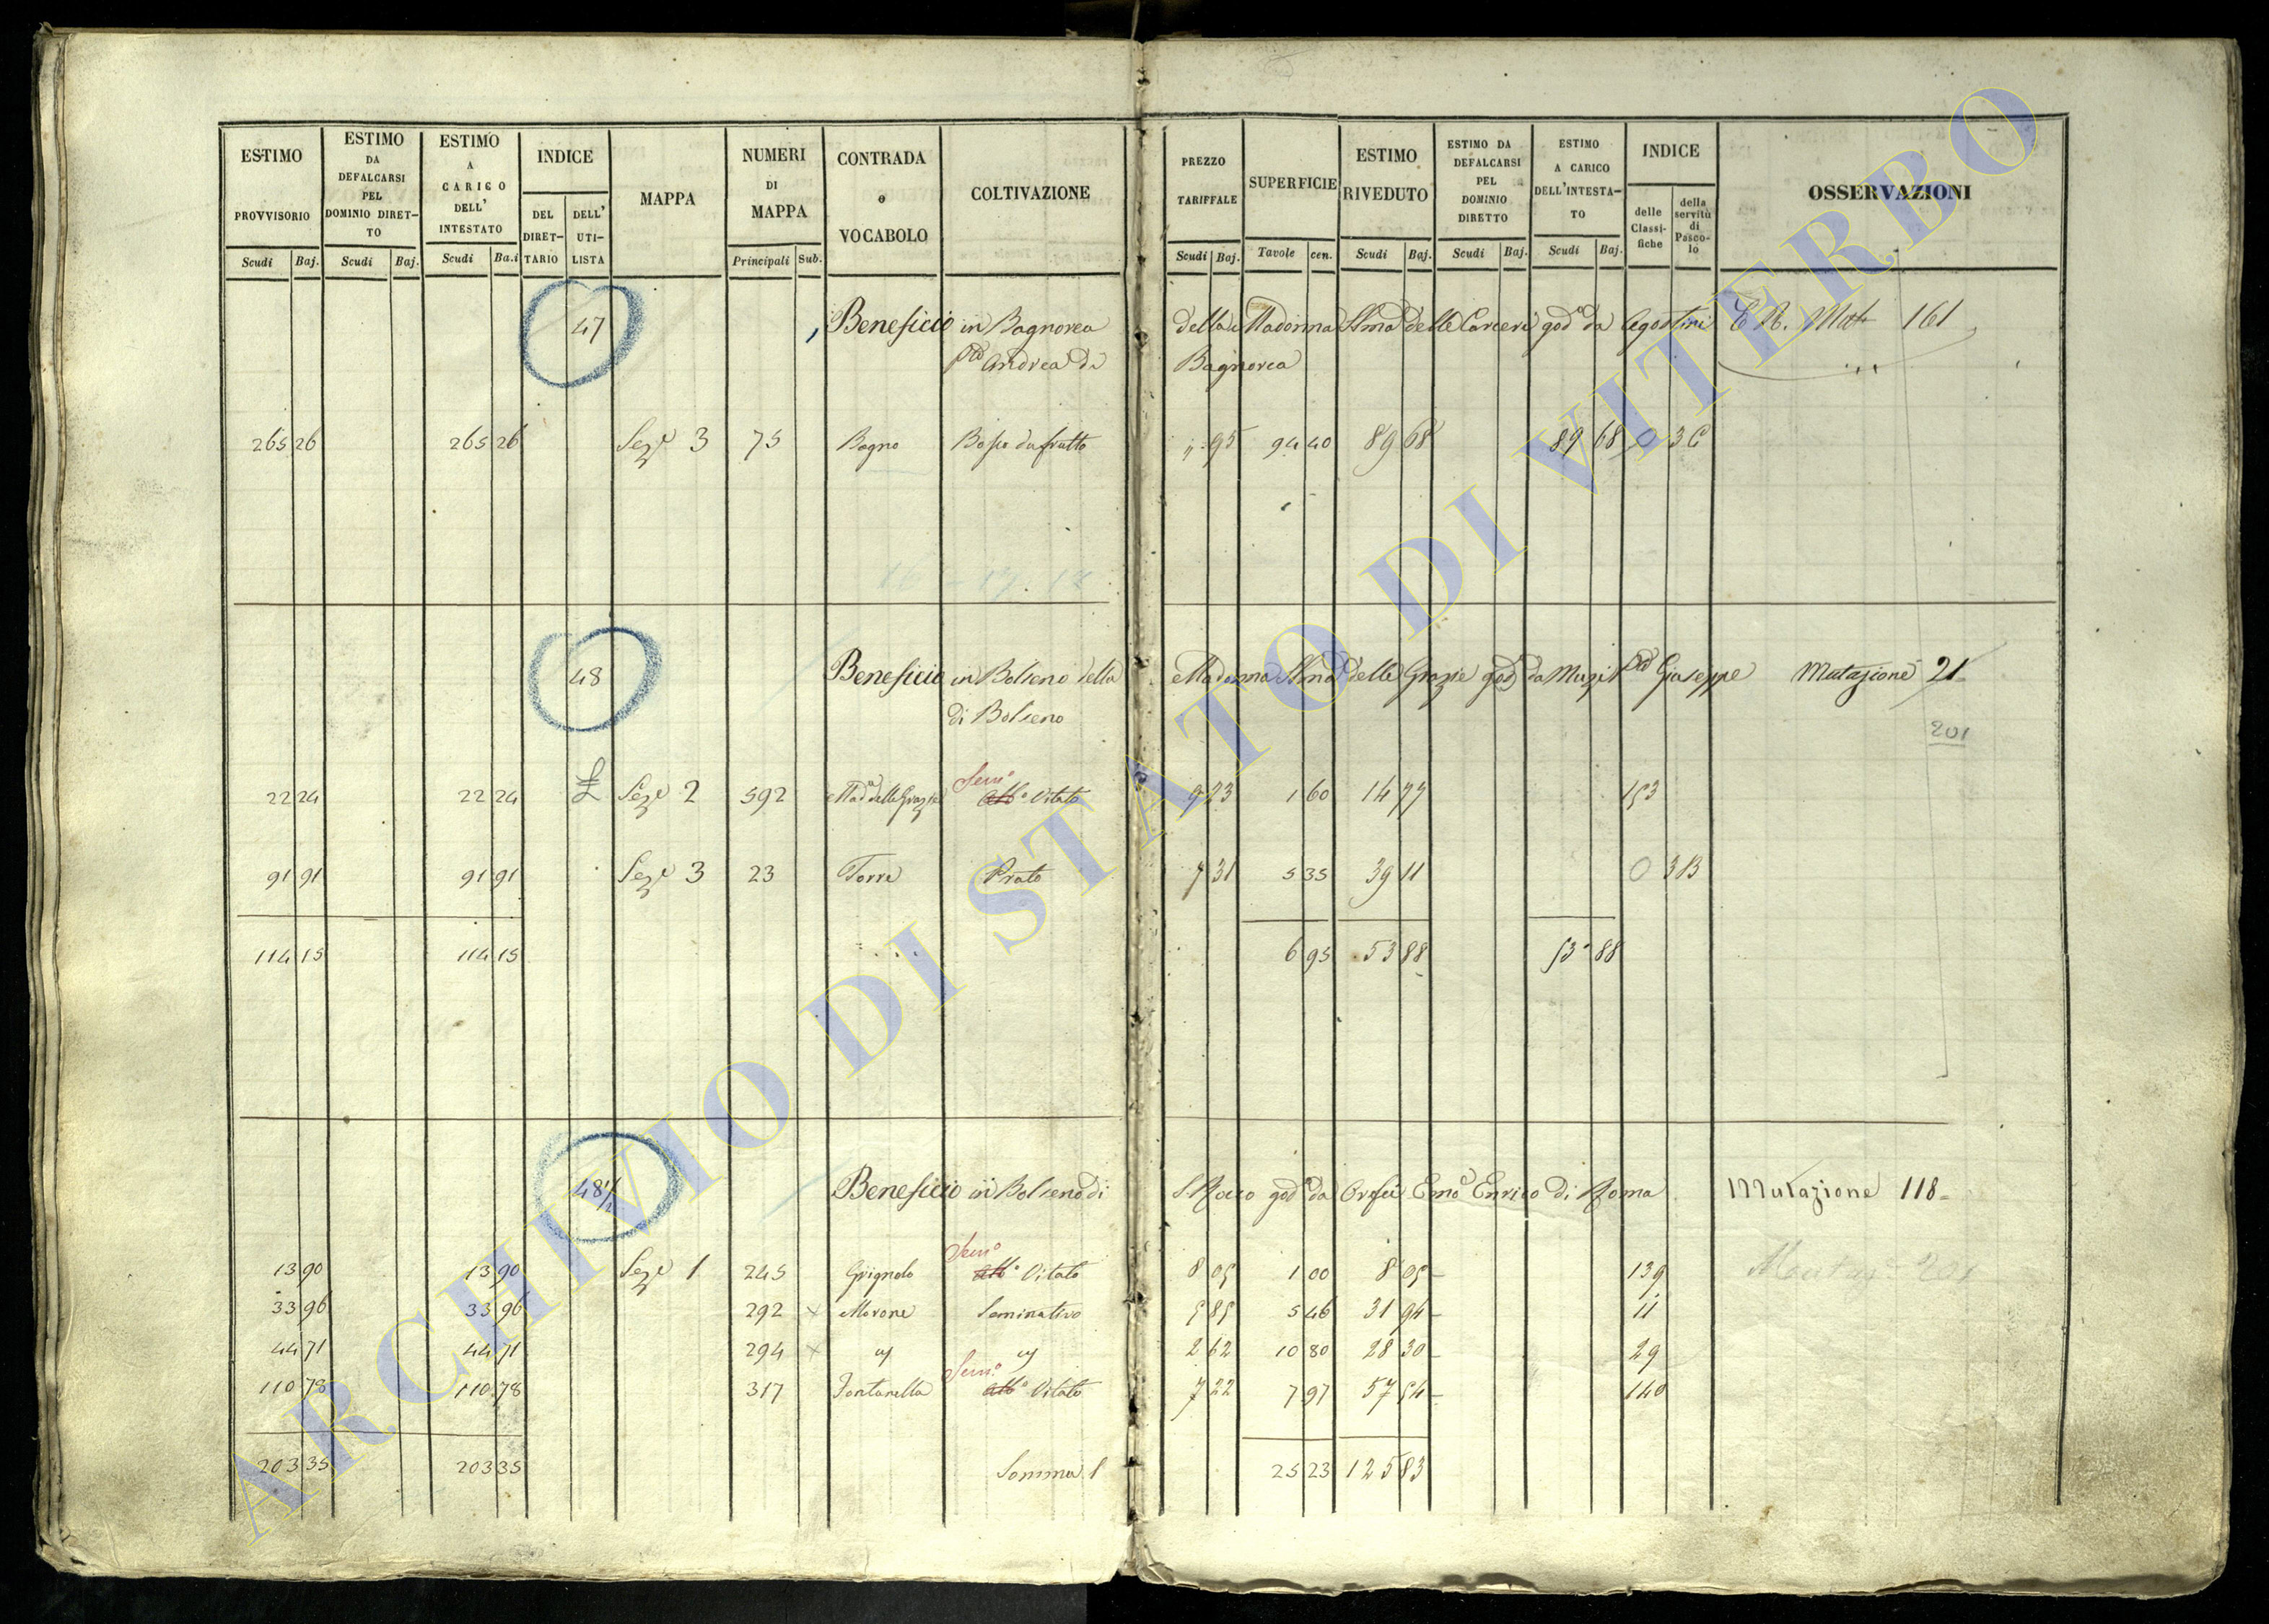 ESTIMO PROVVISORIO | ESTIMO DA DEFALCARSI PEL DOMINIO DIRETTO | ESTIMO A CARICO DELL' INTESTATO | INDICE | MAPPA | NUMERI DI MAPPA | CONTRADA o VOCABOLO | COLTIVAZIONE | PREZZO TARIFFALE | SUPERFICIE | ESTIMO RIVEDUTO | ESTIMO DA DEFALCARSI PEL DOMINIO DIRETTO | ESTIMO A CARICO DELL'INTESTATO | INDICE | OSSERVAZIONI
Scudi | Baj. | Scudi | Baj. | Scudi | Ba.i | DEL DIRETTARIO | DELL' UTILISTA | Principali | Sub. | Scudi | Baj. | Tavole | cen. | Scudi | Baj. | Scudi | Baj. | Scudi | Baj. | delle Classifiche | della servitù di Pascolo
47 Beneficio in Bagnorea della Madonna SSma delle Carceri god. da Agostini 161
Andrea di Bagnorea
265 26 265 26 Seze 3 75 Bagno Bosco da frutto 95 94 40 89 68 89 68 0 3 C
48 Beneficio in Bolseno della Madonna SSma delle Grazie god. da Giuseppe Mutazione 21
di Bolseno
201
22 24 22 24 Seze 2 592 Mad. delle Grazie Semo Albo Vitato 9 23 1 60 14 77 153
91 91 91 91 Seze 3 23 Torre Prato 7 31 5 35 39 11 0 3 B
114 15 114 15 6 95 53 88 53 88
48 1/2 Beneficio in Bolseno di S. Rocco god. da Orfei Emo Enrico di Roma Mutazione 118
13 90 13 90 Seze 1 245 Grignolo Semo Albo Vitato 8 05 1 00 8 05 139
33 96 33 96 292 Morone Seminativo 5 85 5 46 31 94 11
44 71 44 71 294 2 62 10 80 28 30 29
110 78 110 78 317 Fontanella Semo Albo Vitato 7 22 7 97 57 54 140
203 35 203 35 Somma 25 23 125 83
ARCHIVIO DI STATO DI VITERBO